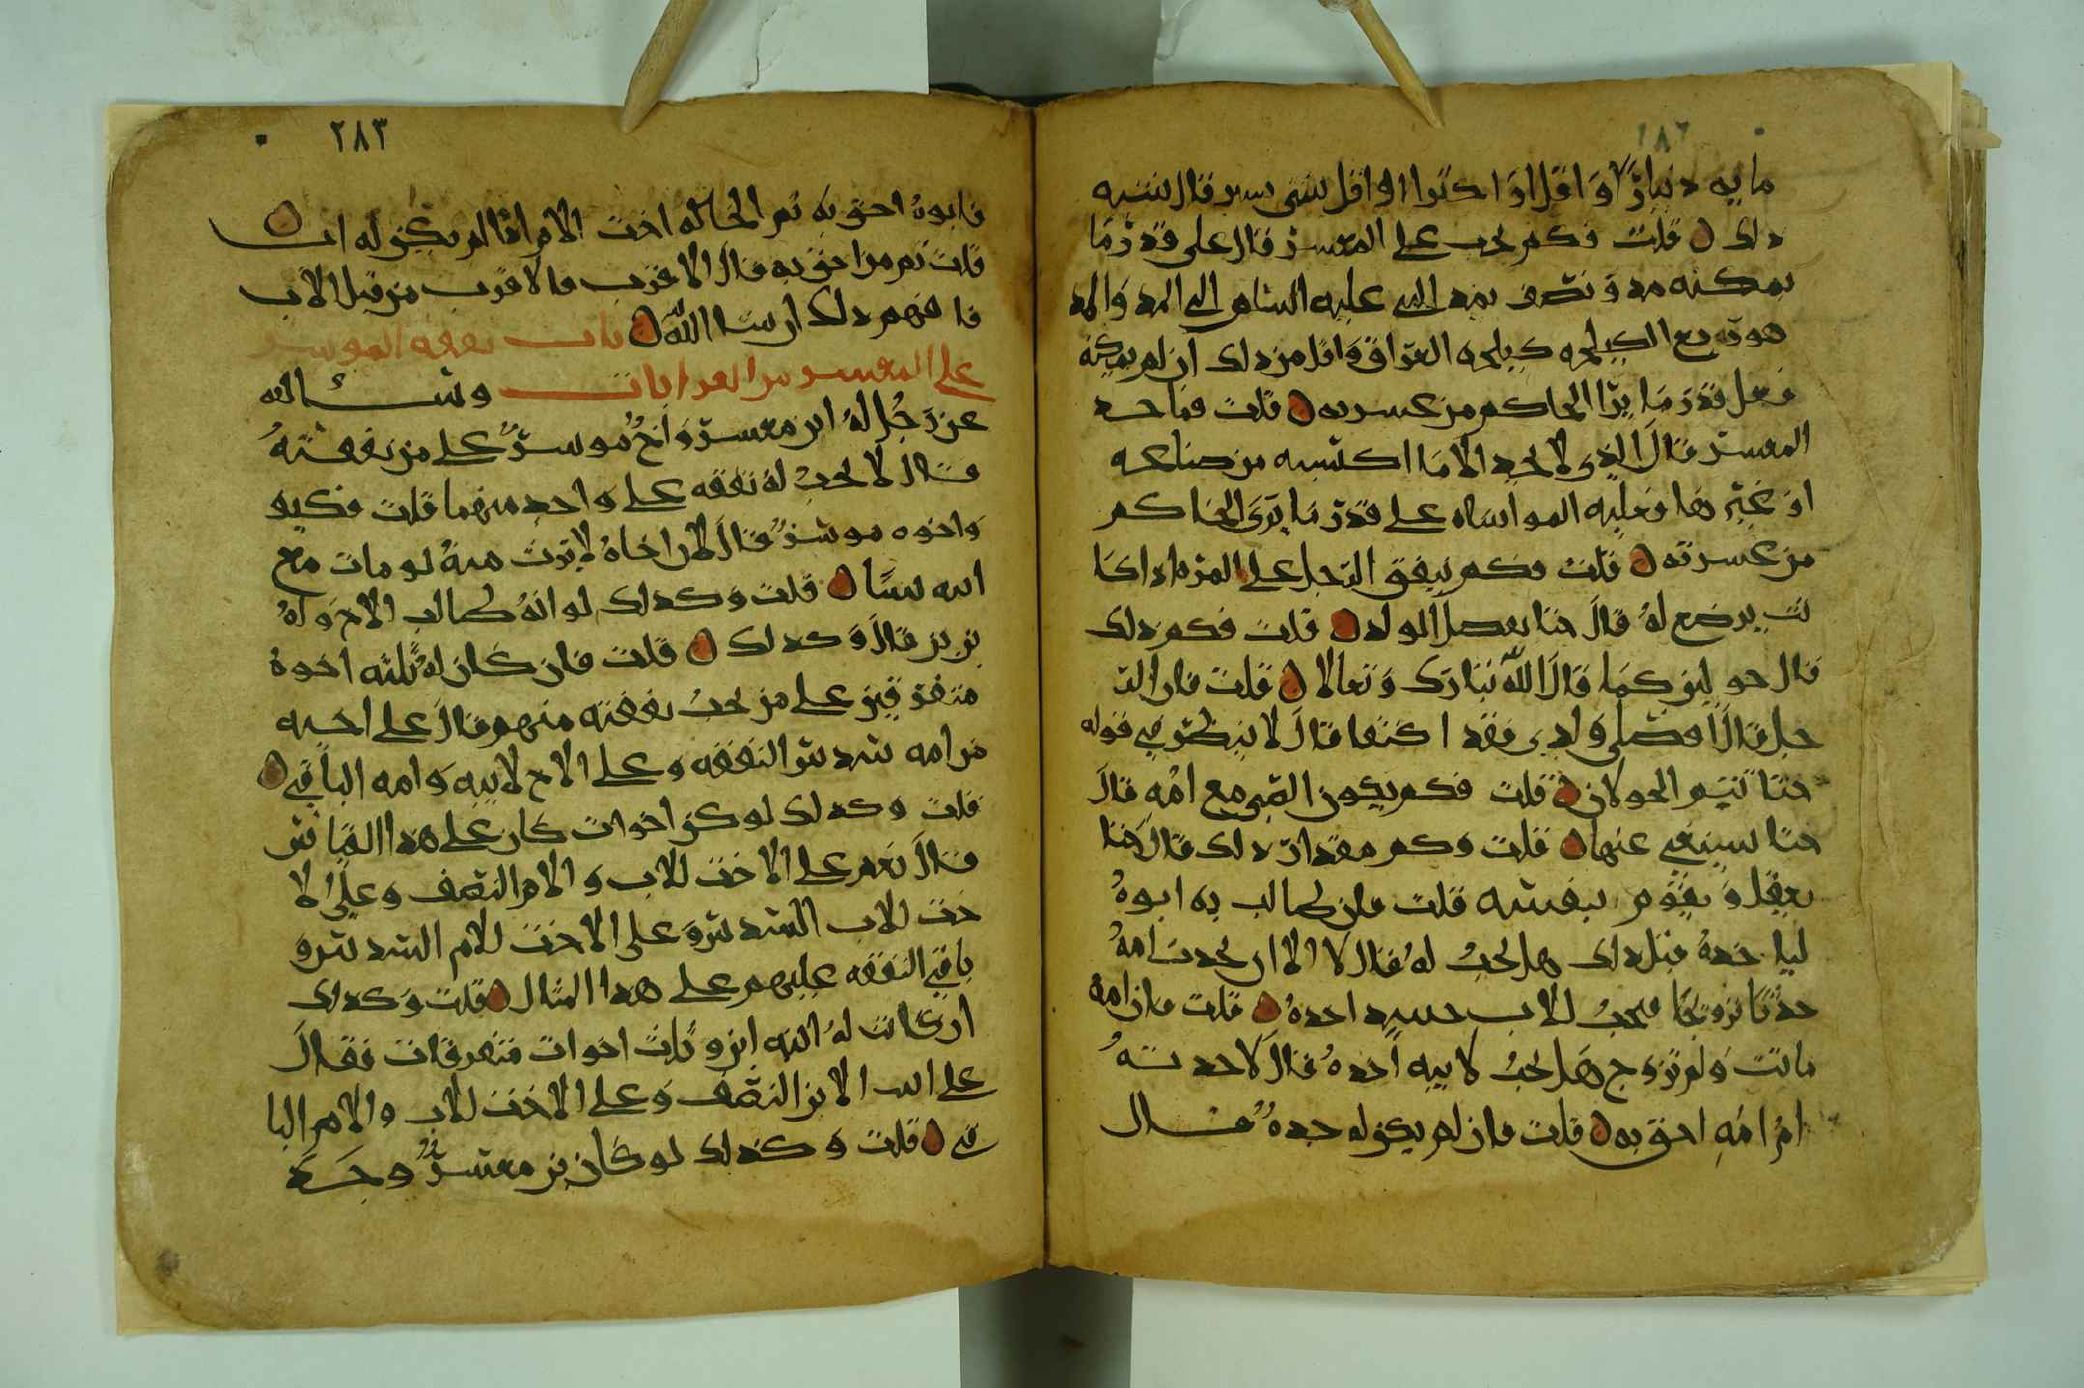 ٢٨٢
مايه دينارًا وَاقل اوَ اكثر او اقل شي يسير قال ينسبه
ذلك قلت فكم يجب على المعسر قال على قدر مَا
يمكنه مد ونصف بمد النبي عليه السلام الى المد والمد
هو ربع الكيلجه كيلجه العراق واقل من ذلك ان لم يمكنه
فعلى قدر مَا يرَا الحاكم من عسرته قلت فما حد
المعسر قال الذي لا يجد الا مَا اكتسبه من صناعته
او غيرها فعليه المواساه على قدر مَا يرَى الحَاكم
من عسرته قلت فكم ينفق الرجل على المرَه اذا كا
نت يرضع لهُ قالَ حتا يفصل المولد قلت فكم ذلك
قال حولين كمَا قالَ اللّه تبارك وَتعالا قلت فان الر
جل قالَ افصلي وَلدي فقد اكتفا قال لا ينظر في قوله
حتا تتم الحولان قلت فكم يكون الصبي مع امُه قالَ
حتا يستغني عنها قلت وكم مقدار ذلك قال حتا
يعقل وَيقوم بنفسه قلت فان طالب به ابوهُ
لياخدهُ قبل ذلك هل يجبُ لهُ قال لا الا ان يحدث امهُ
حدثا تزويجًا فيجبُ للاب حينيد اخدهُ قلت فان امه
ماتت وَلم تزوج هَل يجبُ لابيه اخدهُ قال لا جدتهُ
امُ امُه احق به قلت فان لم يكن له جدهٌ قال
٢٨٣
فابوهُ احق به ثم الخاله اخت الام اذا لم يكن له اب
قلت ثم من احق به قال الاقرب فالاقرب من قبل الاب
فافهم ذلك ان شا اللّه باب نفقه الموسر
على المعسر من القرابات وسالته
عن رَجُل لهُ ابن معسر وَاخٌ موسرٌ على من نفقتهُ
قال لا يجبُ لهُ نفقه على وَاحد منهما قلت فكيف
وَاخوه موسرٌ قالَ لان اخاهُ لا يرث منهُ لو مات مع
ابنه شيًا قلت وَكدلك لو انهُ طالب الاخ وَلهُ
بنين قالَ وَكدلك قلت فان كان لهُ ثلثه اخوهٌ
متفرقين على من يجبُ نفقته منهم قالَ على اخيه
من امه سدس النفقه وعلى الاخ لابيه وَامه الباقي
قلت وكدلك لو كن اخوات كان على هدا القياس
قالَ نعم على الاخت للاب وَالام النصف وعلى الا
خت للاب السدس وَعلى الاخت للام السدس و
باقي النفقه عليهم على هدا المثال قلت وَكدلك
ان كانت لهُ ابنه ابن وثلث اخوات متفرقات فقالَ
على ابنه الابن النصف وَعلى الاخت للاب والام البا
قي قلت وَكدلك لو كان بن معسرٌ وجَده